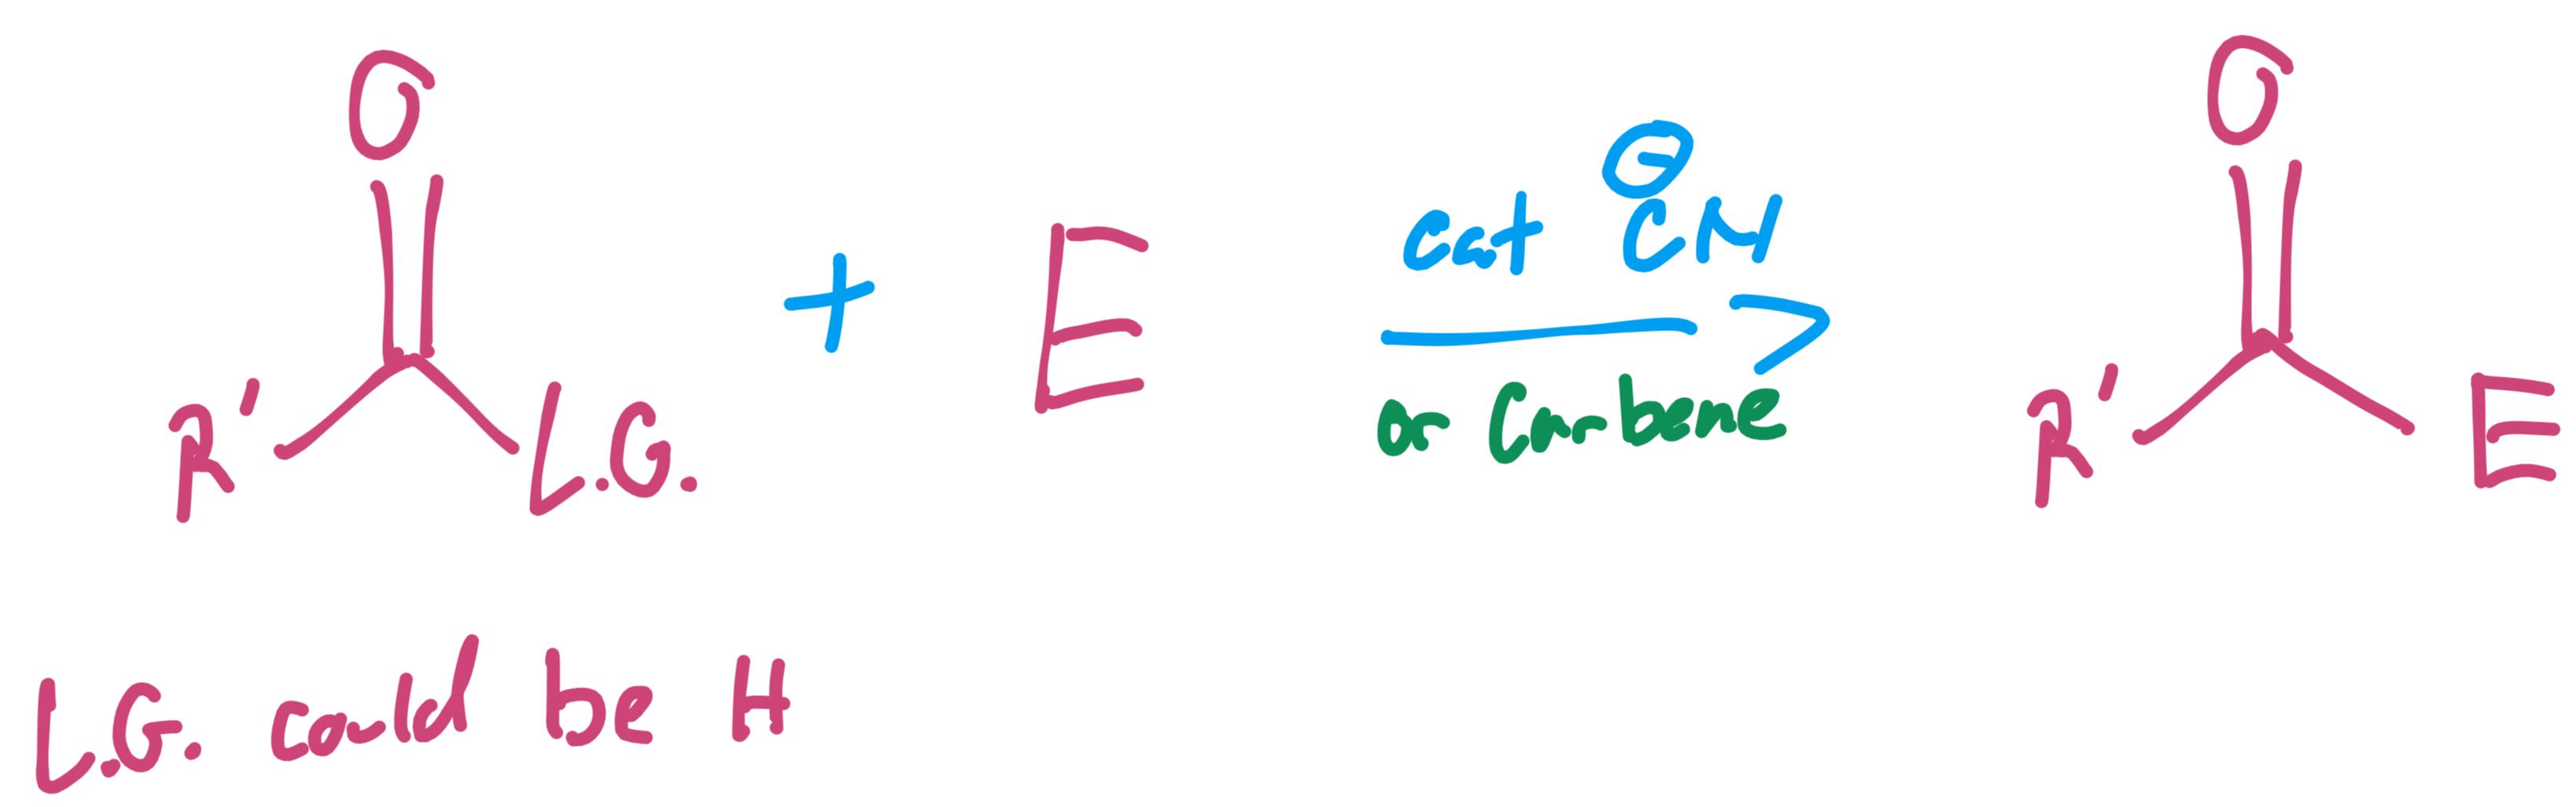 O
R' L.G. + E
cat ⊖CN
or Carbene
O
R' E
L.G. could be H